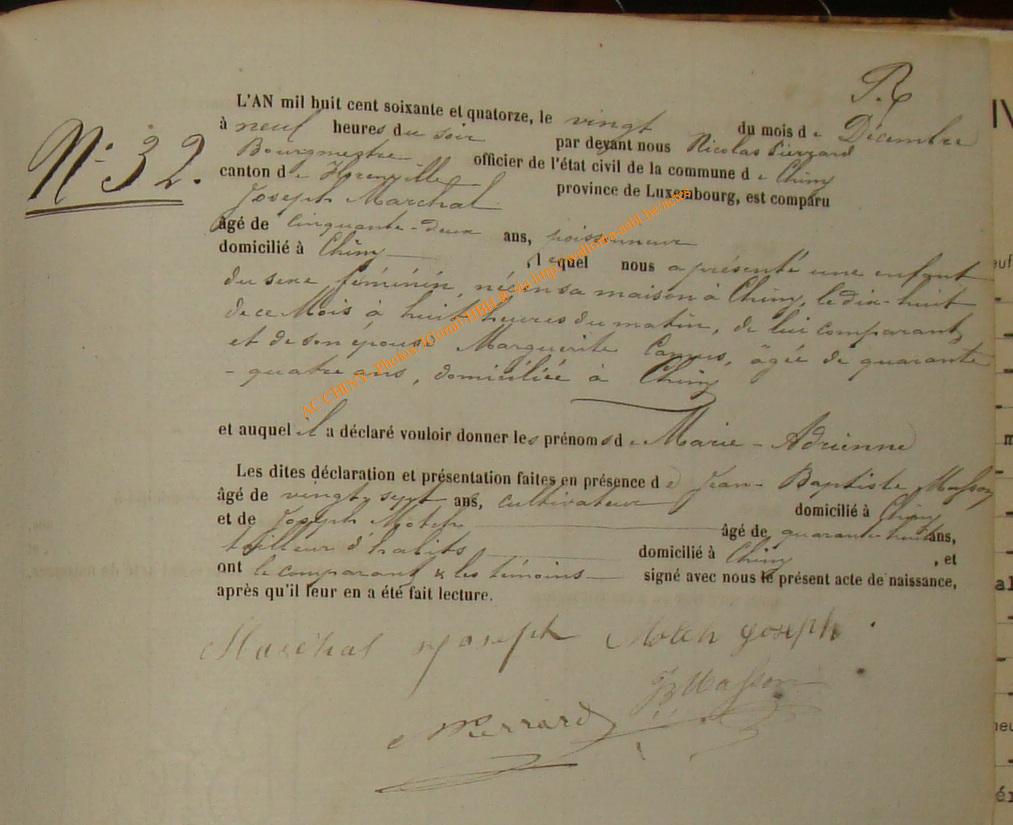 N° 32.
L'AN mil huit cent soixante et quatorze, le vingt du mois de Décembre
à neuf heures du soir par devant nous Nicolas Pierrard
Bourgmestre officier de l'état civil de la commune de Chiny
canton de Florenville province de Luxembourg, est comparu
Joseph Maréchal
âgé de cinquante-deux ans, poissonneur
domicilié à Chiny, lequel nous a présenté une enfant
du sexe féminin, née en sa maison à Chiny, le dix-huit
de ce Mois à huit heures du matin, de lui comparant
et de son épouse Marguerite, âgée de quarante
-quatre ans, domiciliée à Chiny
et auquel il a déclaré vouloir donner les prénoms de Marie-Adrienne
Les dites déclaration et présentation faites en présence de Jean-Baptiste Masson
âgé de vingt sept ans, cultivateur domicilié à Chiny
et de Joseph Motch âgé de quarante huit ans,
tailleur d'habits domicilié à Chiny, et
ont le comparant & les témoins signé avec nous le présent acte de naissance,
après qu'il leur en a été fait lecture.
Maréchal Joseph Motch Joseph
JB Masson
NPierrard
AC CHINY - Photos